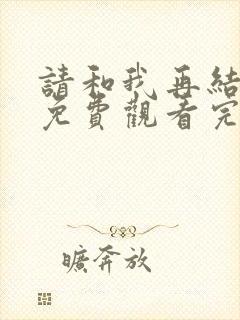 請和我再結
免費觀看完
曠奔放